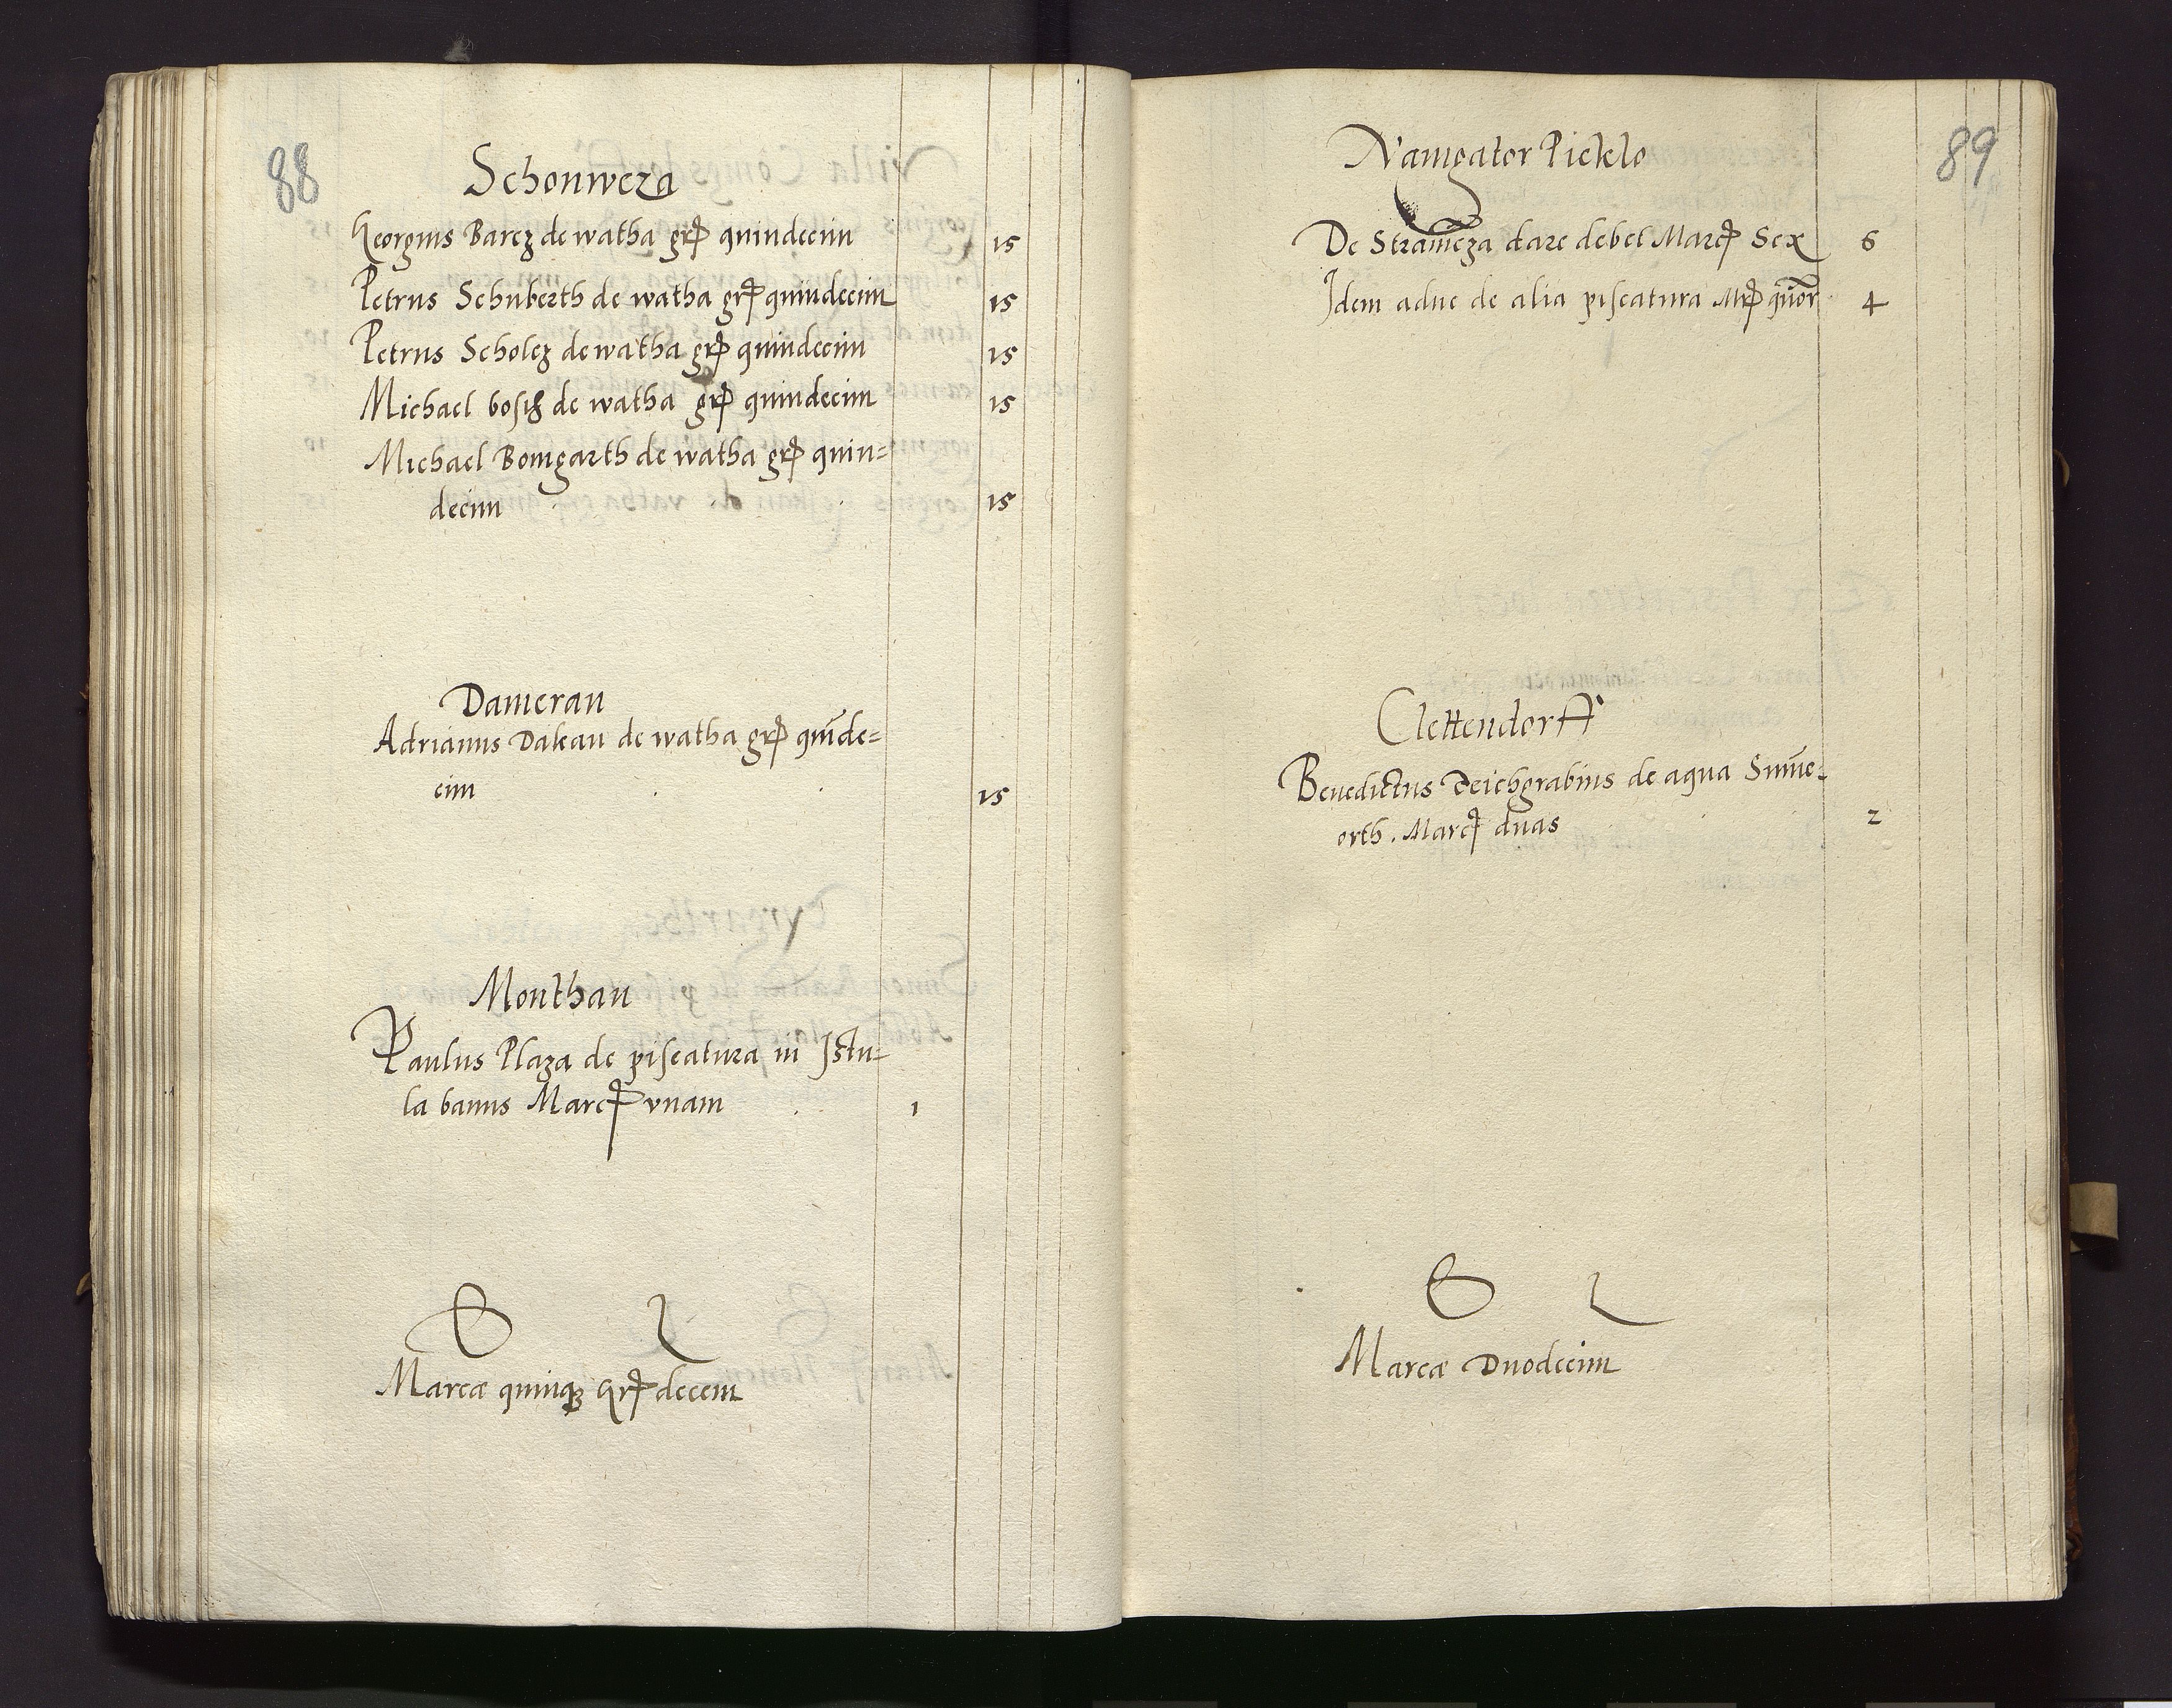 88
Schonweza
Georgius Barcz de watha grꝭ quindecim 15
Petrus Schuberth de watha grꝭ quindecim 15
Petrus Scholcz de watha grꝭ quindecim 15
Michael bosch de watha grꝭ quindecim 15
Michael Bomgarth de watha grꝭ quin=
decim 15
Damerau
Adrianus Dakau de watha grꝭ quīde=
cim 15
Monthau
Paulus Plaza de piscatura in Istu=
la banus Marcꝭ vnam 1
Marcæ quinqꝫ Grꝭ decem
89
Nauigator Pieklo
De Stramēza dare debet Marcꝭ Sex 6
Idem aduc de alia piscatura Mrꝭ quōr 4
Clettendorff
Benedictus Deichgrabius de aqua Sum̄e=
orth. Marcꝭ duas 2
Marcæ Duodecim